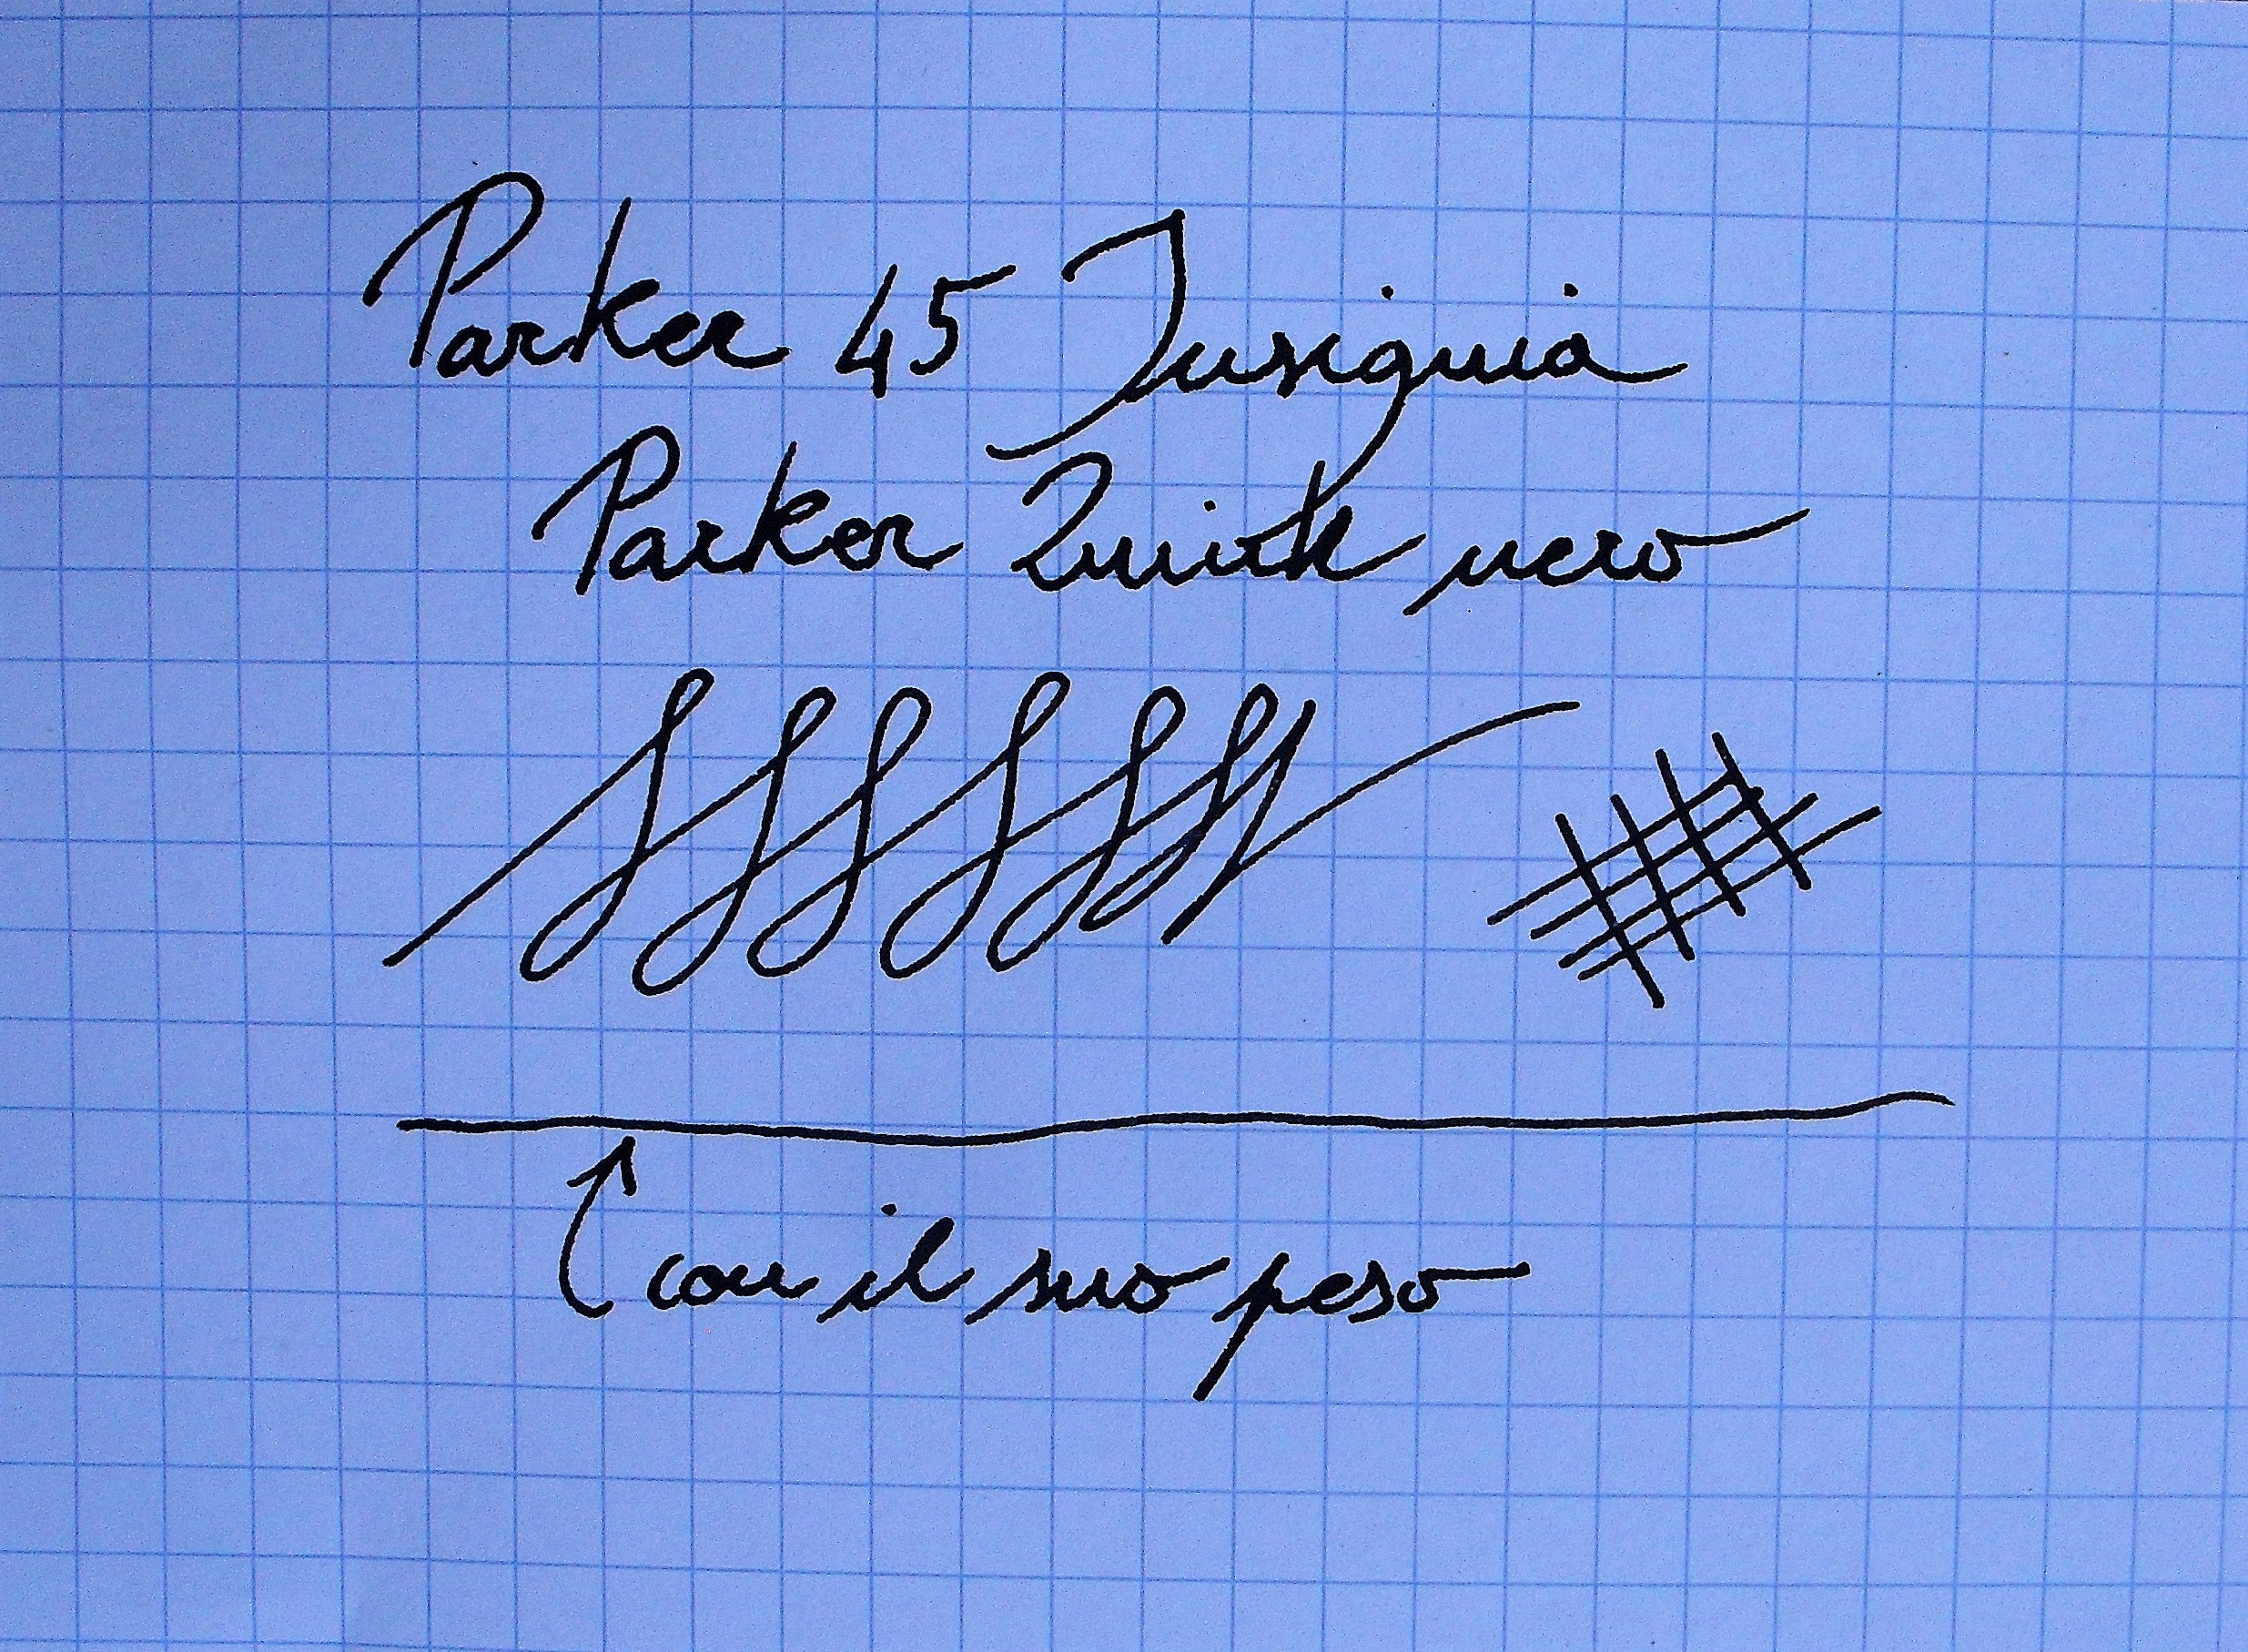 Parker 45 Insignia
Parker Quink nero
con il suo peso